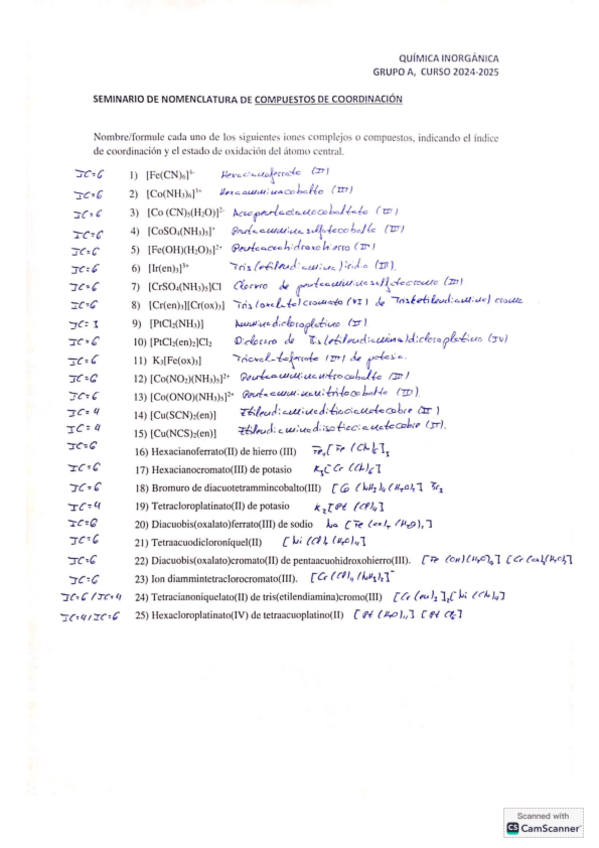 QUÍMICA INORGÁNICA
GRUPO A, CURSO 2024-2025
SEMINARIO DE NOMENCLATURA DE COMPUESTOS DE COORDINACIÓN
Nombre/formule cada uno de los siguientes iones complejos o compuestos, indicando el índice
de coordinación y el estado de oxidación del átomo central.
IC=6 1) [Fe(CN)₆]⁴⁻ Hexacianoferrato (II)
IC=6 2) [Co(NH₃)₆]³⁺ Hexaamminacobalto (III)
IC=6 3) [Co (CN)₅(H₂O)]²⁻ Acuopentacianocobaltato (III)
IC=6 4) [CoSO₄(NH₃)₅]⁺ Pentaamminasulfatocobalto (III)
IC=6 5) [Fe(OH)(H₂O)₅]²⁺ Pentaacuohidroxohierro (III)
IC=6 6) [Ir(en)₃]³⁺ Tris(etilendiamina)iridio (III).
IC=6 7) [CrSO₄(NH₃)₅]Cl Cloruro de pentaamminasulfatocromo (III)
IC=6 8) [Cr(en)₃][Cr(ox)₃] Tris(oxalato)cromato (III) de Tris(etilendiamina) cromo
IC=3 9) [PtCl₂(NH₃)] Amminadicloroplatino (II)
IC=6 10) [PtCl₂(en)₂]Cl₂ Dicloruro de Bis(etilendiamina)dicloroplatino (IV)
IC=6 11) K₃[Fe(ox)₃] Trioxalatoferrato (III) de potasio.
IC=6 12) [Co(NO₂)(NH₃)₅]²⁺ Pentaamminanitrocobalto (III)
IC=6 13) [Co(ONO)(NH₃)₅]²⁺ Pentaamminanitritocobalto (III)
IC=4 14) [Cu(SCN)₂(en)] Etilendiaminaditiocianatocobre (II)
IC=4 15) [Cu(NCS)₂(en)] Etilendiaminadiisotiocianatocobre (II).
IC=6 16) Hexacianoferrato(II) de hierro (III) Fe₄[Fe (CN)₆]₃
IC=6 17) Hexacianocromato(III) de potasio K₃[Cr (CN)₆]
IC=6 18) Bromuro de diacuotetrammincobalto(III) [Co (NH₃)₄(H₂O)₂] Br₃
IC=4 19) Tetracloroplatinato(II) de potasio K₂[Pt (Cl)₄]
IC=6 20) Diacuobis(oxalato)ferrato(III) de sodio Na [Fe (ox)₂ (H₂O)₂]
IC=6 21) Tetraacuodicloroníquel(II) [Ni (Cl)₂ (H₂O)₄]
IC=6 22) Diacuobis(oxalato)cromato(II) de pentaacuohidroxohierro(III). [Fe (OH)(H₂O)₅] [Cr (ox)₂(H₂O)₂]
IC=6 23) Ion diammintetraclorocromato(III). [Cr (Cl)₄ (NH₃)₂]⁻
IC=6 / IC=4 24) Tetracianoniquelato(II) de tris(etilendiamina)cromo(III) [Cr (en)₃]₂[Ni (CN)₄]
IC=4 / IC=6 25) Hexacloroplatinato(IV) de tetraacuoplatino(II) [Pt (H₂O)₄] [Pt Cl₆]
Scanned with
CS CamScanner